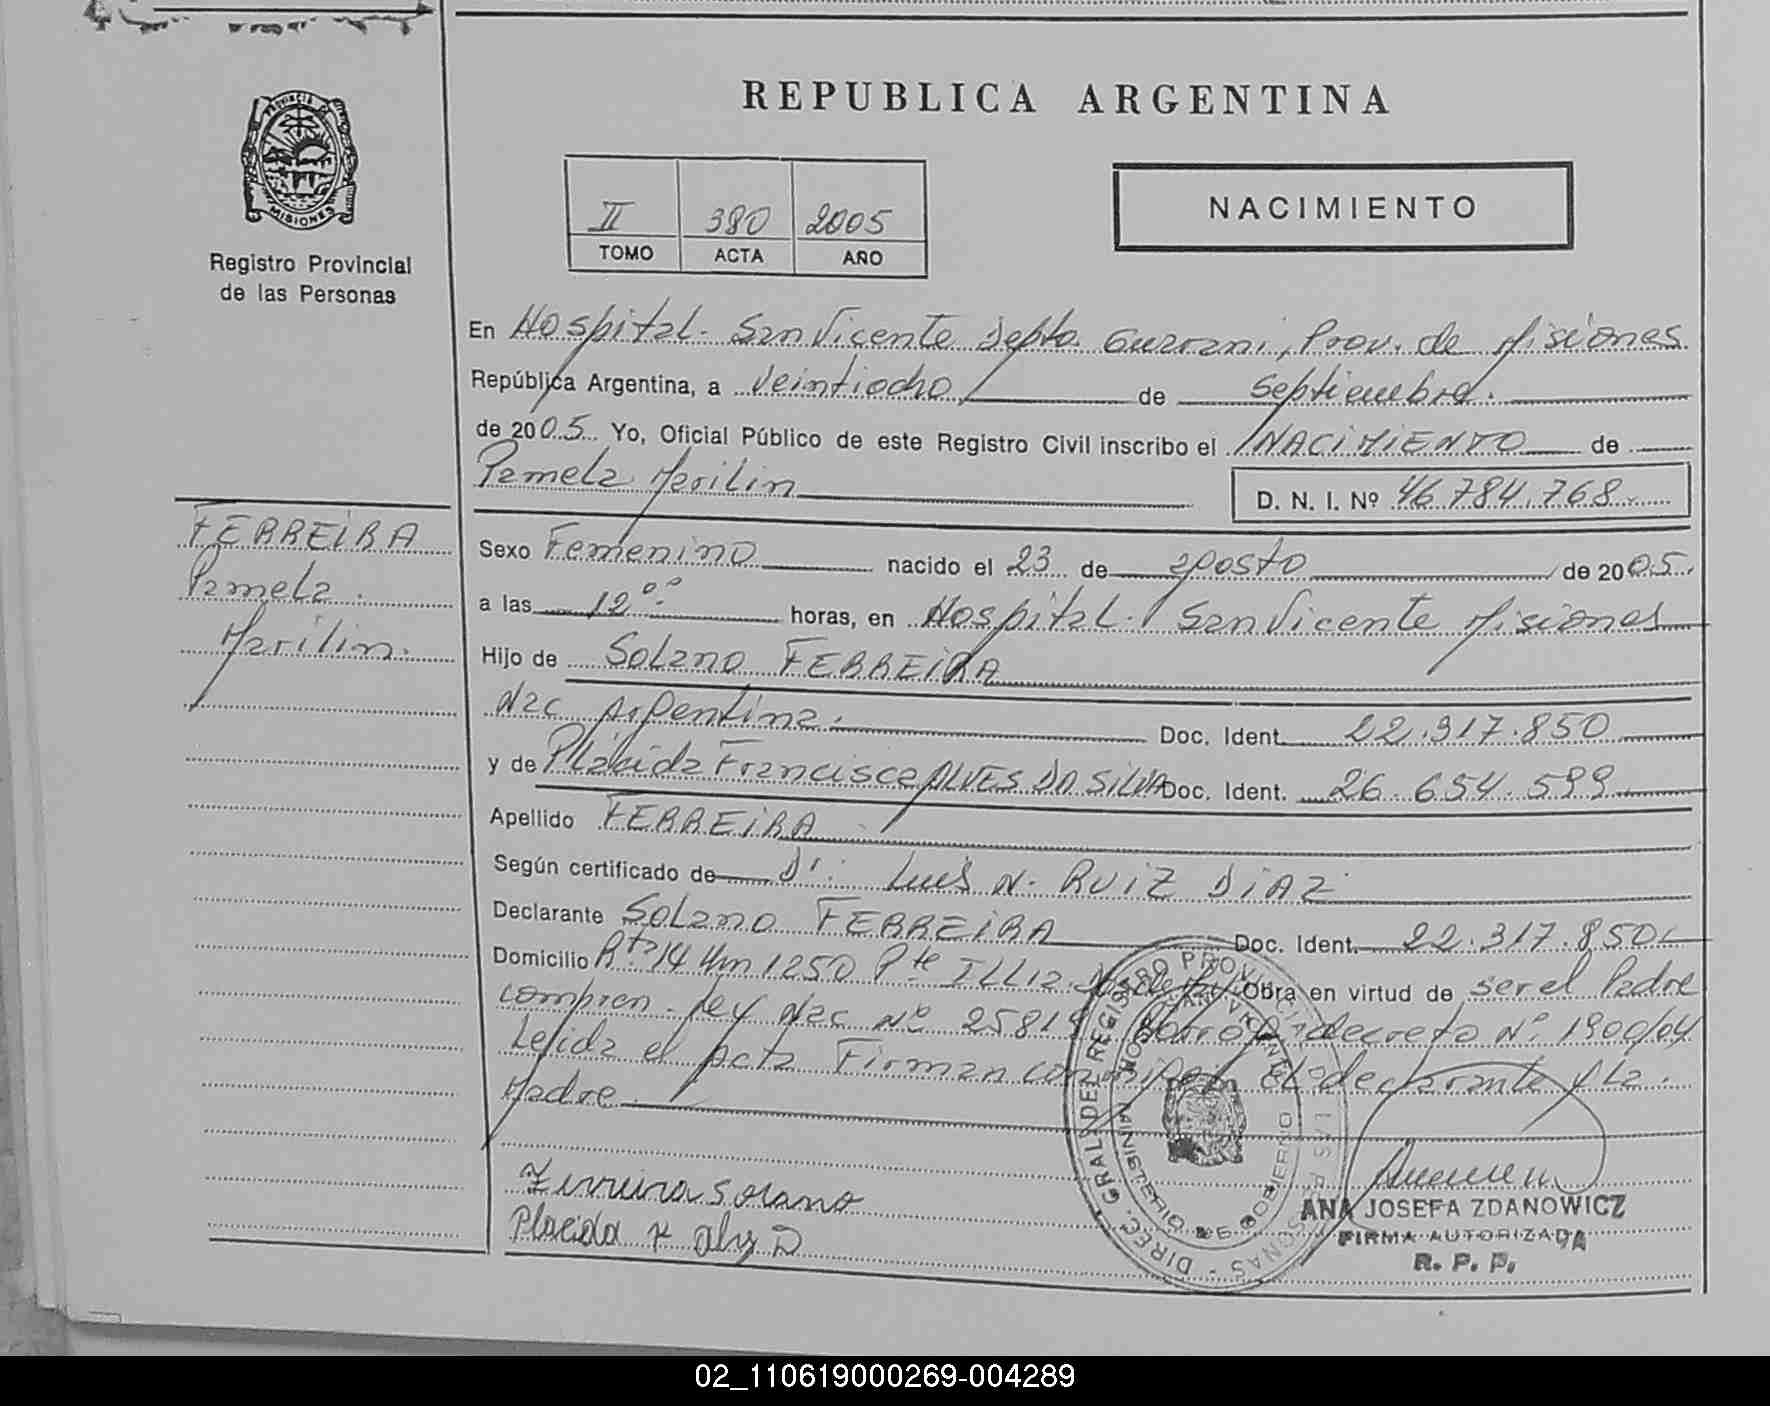 REPUBLICA ARGENTINA
PROVINCIA DE
MISIONES
Registro Provincial
de las Personas
II 380 2005
TOMO ACTA AÑO
NACIMIENTO
En Hospital. San Vicente Depto. Guarani, Prov. de Misiones.
República Argentina, a Veintiocho de Septiembre.
de 2005 Yo, Oficial Público de este Registro Civil inscribo el NACIMIENTO de
Pamela Marilin
D. N. I. Nº 46.784.768
FERREIRA
Pamela
Marilin.
Sexo Femenino nacido el 23 de agosto de 2005.
a las 12°° horas, en Hospital. San Vicente Misiones
Hijo de Solano FERREIRA
Nac Argentina. Doc. Ident. 22.317.850
y de Plácida Francisca ALVES DA SILVA Doc. Ident. 26.654.599
Apellido FERREIRA
Según certificado de Dr. Luis N. RUIZ DIAZ
Declarante Solano FERREIRA Doc. Ident. 22.317.850
Domicilio Rta 14 Km 1250 Pte ILLia Obra en virtud de ser el Padre
compren. Ley Nac Nº 25819 decreto Nº 1900/04
Leida el acta Firman conmigo El declarante y La
Madre
Ferreira Solano
Placida F alvz D
DIREC. GRAL. DEL REGISTRO PROVINCIAL DE LAS PERSONAS
MINISTERIO DE GOBIERNO
ANA JOSEFA ZDANOWICZ
FIRMA AUTORIZADA
R. P. P.
02_110619000269-004289